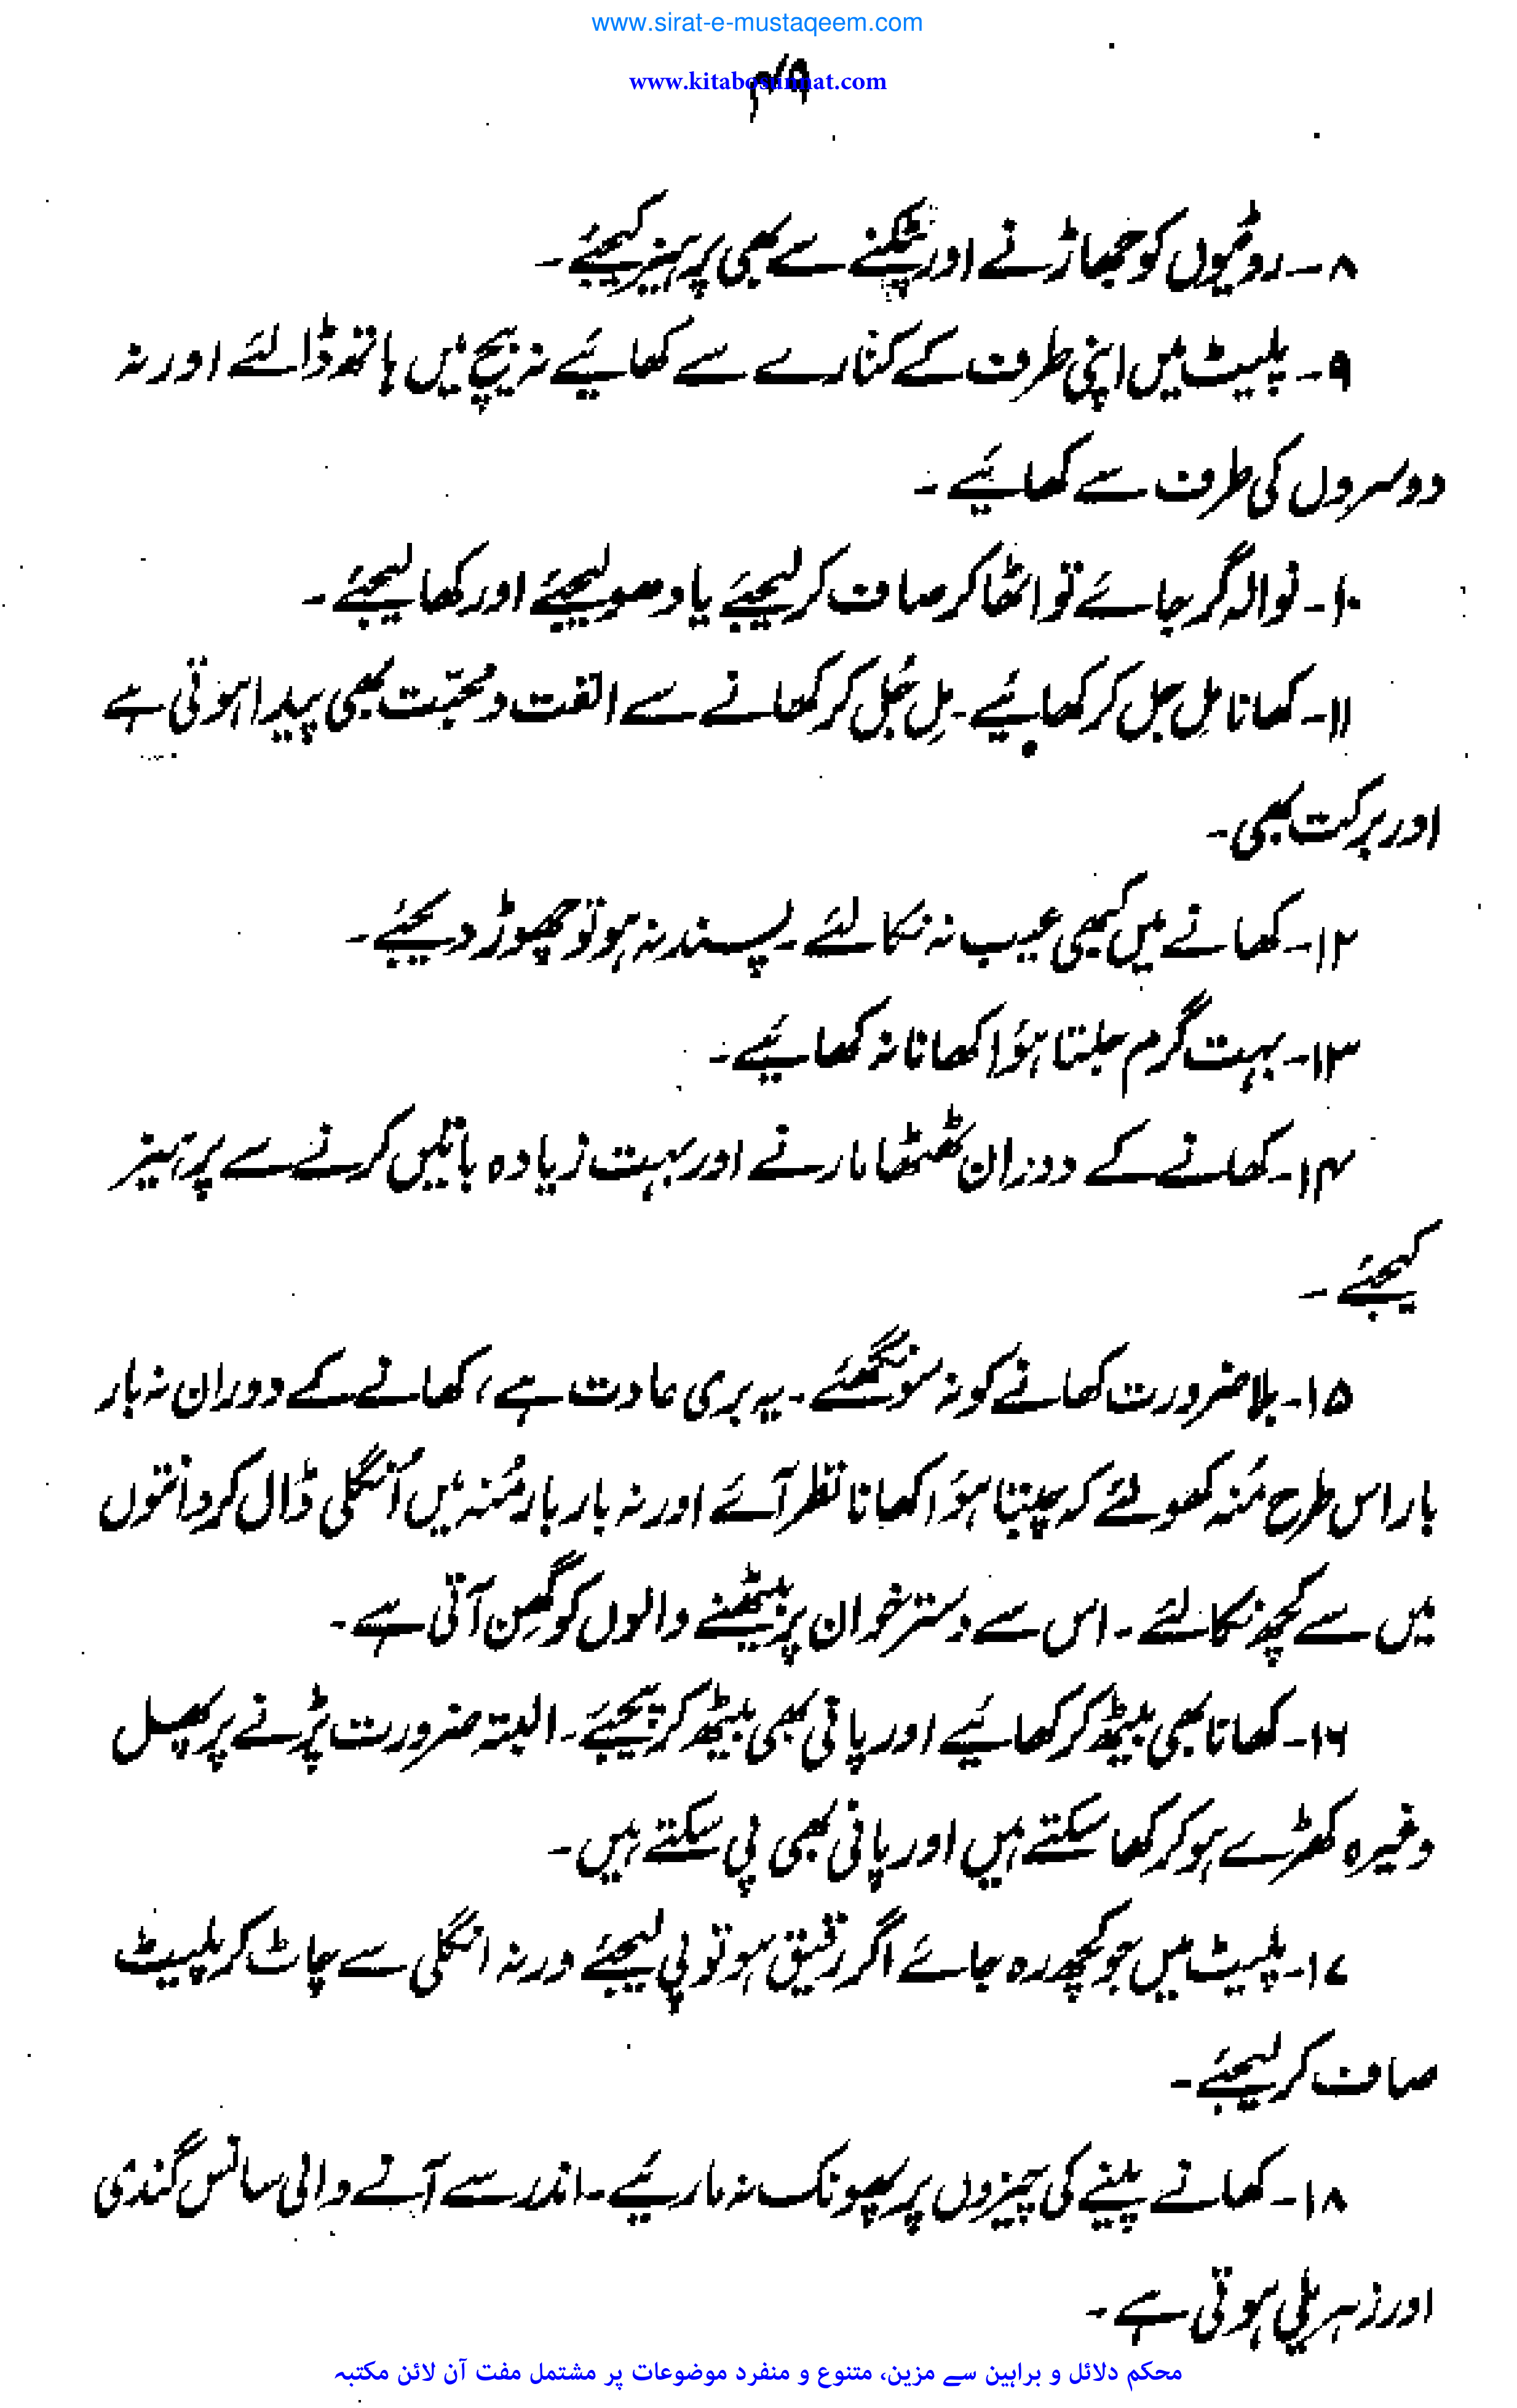 www.sirat-e-mustaqeem.com
www.kitabosunnat.com
۴۹
۸۔ روٹیوں کو جھاڑنے اور پٹکنے سے بھی پرہیز کیجئے۔
۹۔ پلیٹ میں اپنی طرف کے کنارے سے کھائیے نہ بیچ میں ہاتھ ڈالئے اور نہ
دوسروں کی طرف سے کھائیے۔
۱۰۔ نوالہ گر جائے تو اٹھا کر صاف کر لیجئے یا دھو لیجئے اور کھا لیجئے۔
۱۱۔ کھانا مل جل کر کھائیے۔ مِل جُل کر کھانے سے الفت و محبّت بھی پیدا ہوتی ہے
اور برکت بھی۔
۱۲۔ کھانے میں کبھی عیب نہ نکالئے۔ پسند نہ ہو تو چھوڑ دیجئے۔
۱۳۔ بہت گرم جلتا ہؤا کھانا نہ کھائیے۔
۱۴۔ کھانے کے دوران ٹھٹھا مارنے اور بہت زیادہ باتیں کرنے سے پرہیز
کیجئے۔
۱۵۔ بلا ضرورت کھانے کو نہ سونگھئے۔ یہ بری عادت ہے، کھانے کے دوران نہ بار
بار اس طرح مُنہ کھولئے کہ چبتا ہؤا کھانا نظر آئے اور نہ بار بار مُنہ میں اُنگلی ڈال کر دانتوں
میں سے کچھ نکالئے۔ اس سے دسترخوان پر بیٹھنے والوں کو گھِن آتی ہے۔
۱۶۔ کھانا بھی بیٹھ کر کھائیے اور پانی بھی بیٹھ کر پیجئے۔ البتہ ضرورت پڑنے پر پھل
وغیرہ کھڑے ہو کر کھا سکتے ہیں اور پانی بھی پی سکتے ہیں۔
۱۷۔ پلیٹ میں جو کچھ رہ جائے اگر رقیق ہو تو پی لیجئے ورنہ انگلی سے چاٹ کر پلیٹ
صاف کر لیجئے۔
۱۸۔ کھانے پینے کی چیزوں پر پھونک نہ مارئیے۔ اندر سے آنے والی سانس گندی
اور زہریلی ہوتی ہے۔
محکم دلائل و براہین سے مزین، متنوع و منفرد موضوعات پر مشتمل مفت آن لائن مکتبہ